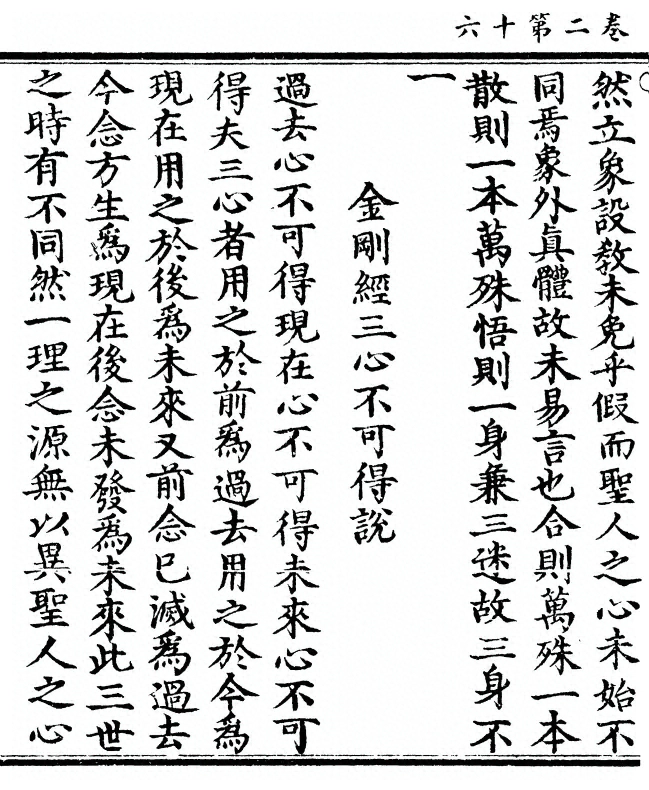 卷二第十六
然立象設教未免乎假而聖人之心未始不
同焉象外眞體故未易言也合則萬殊一本
散則一本萬殊悟則一身兼三迷故三身不
一
金剛經三心不可得說
過去心不可得現在心不可得未來心不可
得夫三心者用之於前爲過去用之於今爲
現在用之於後爲未來又前念已滅爲過去
今念方生爲現在後念未發爲未來此三世
之時有不同然一理之源無以異聖人之心